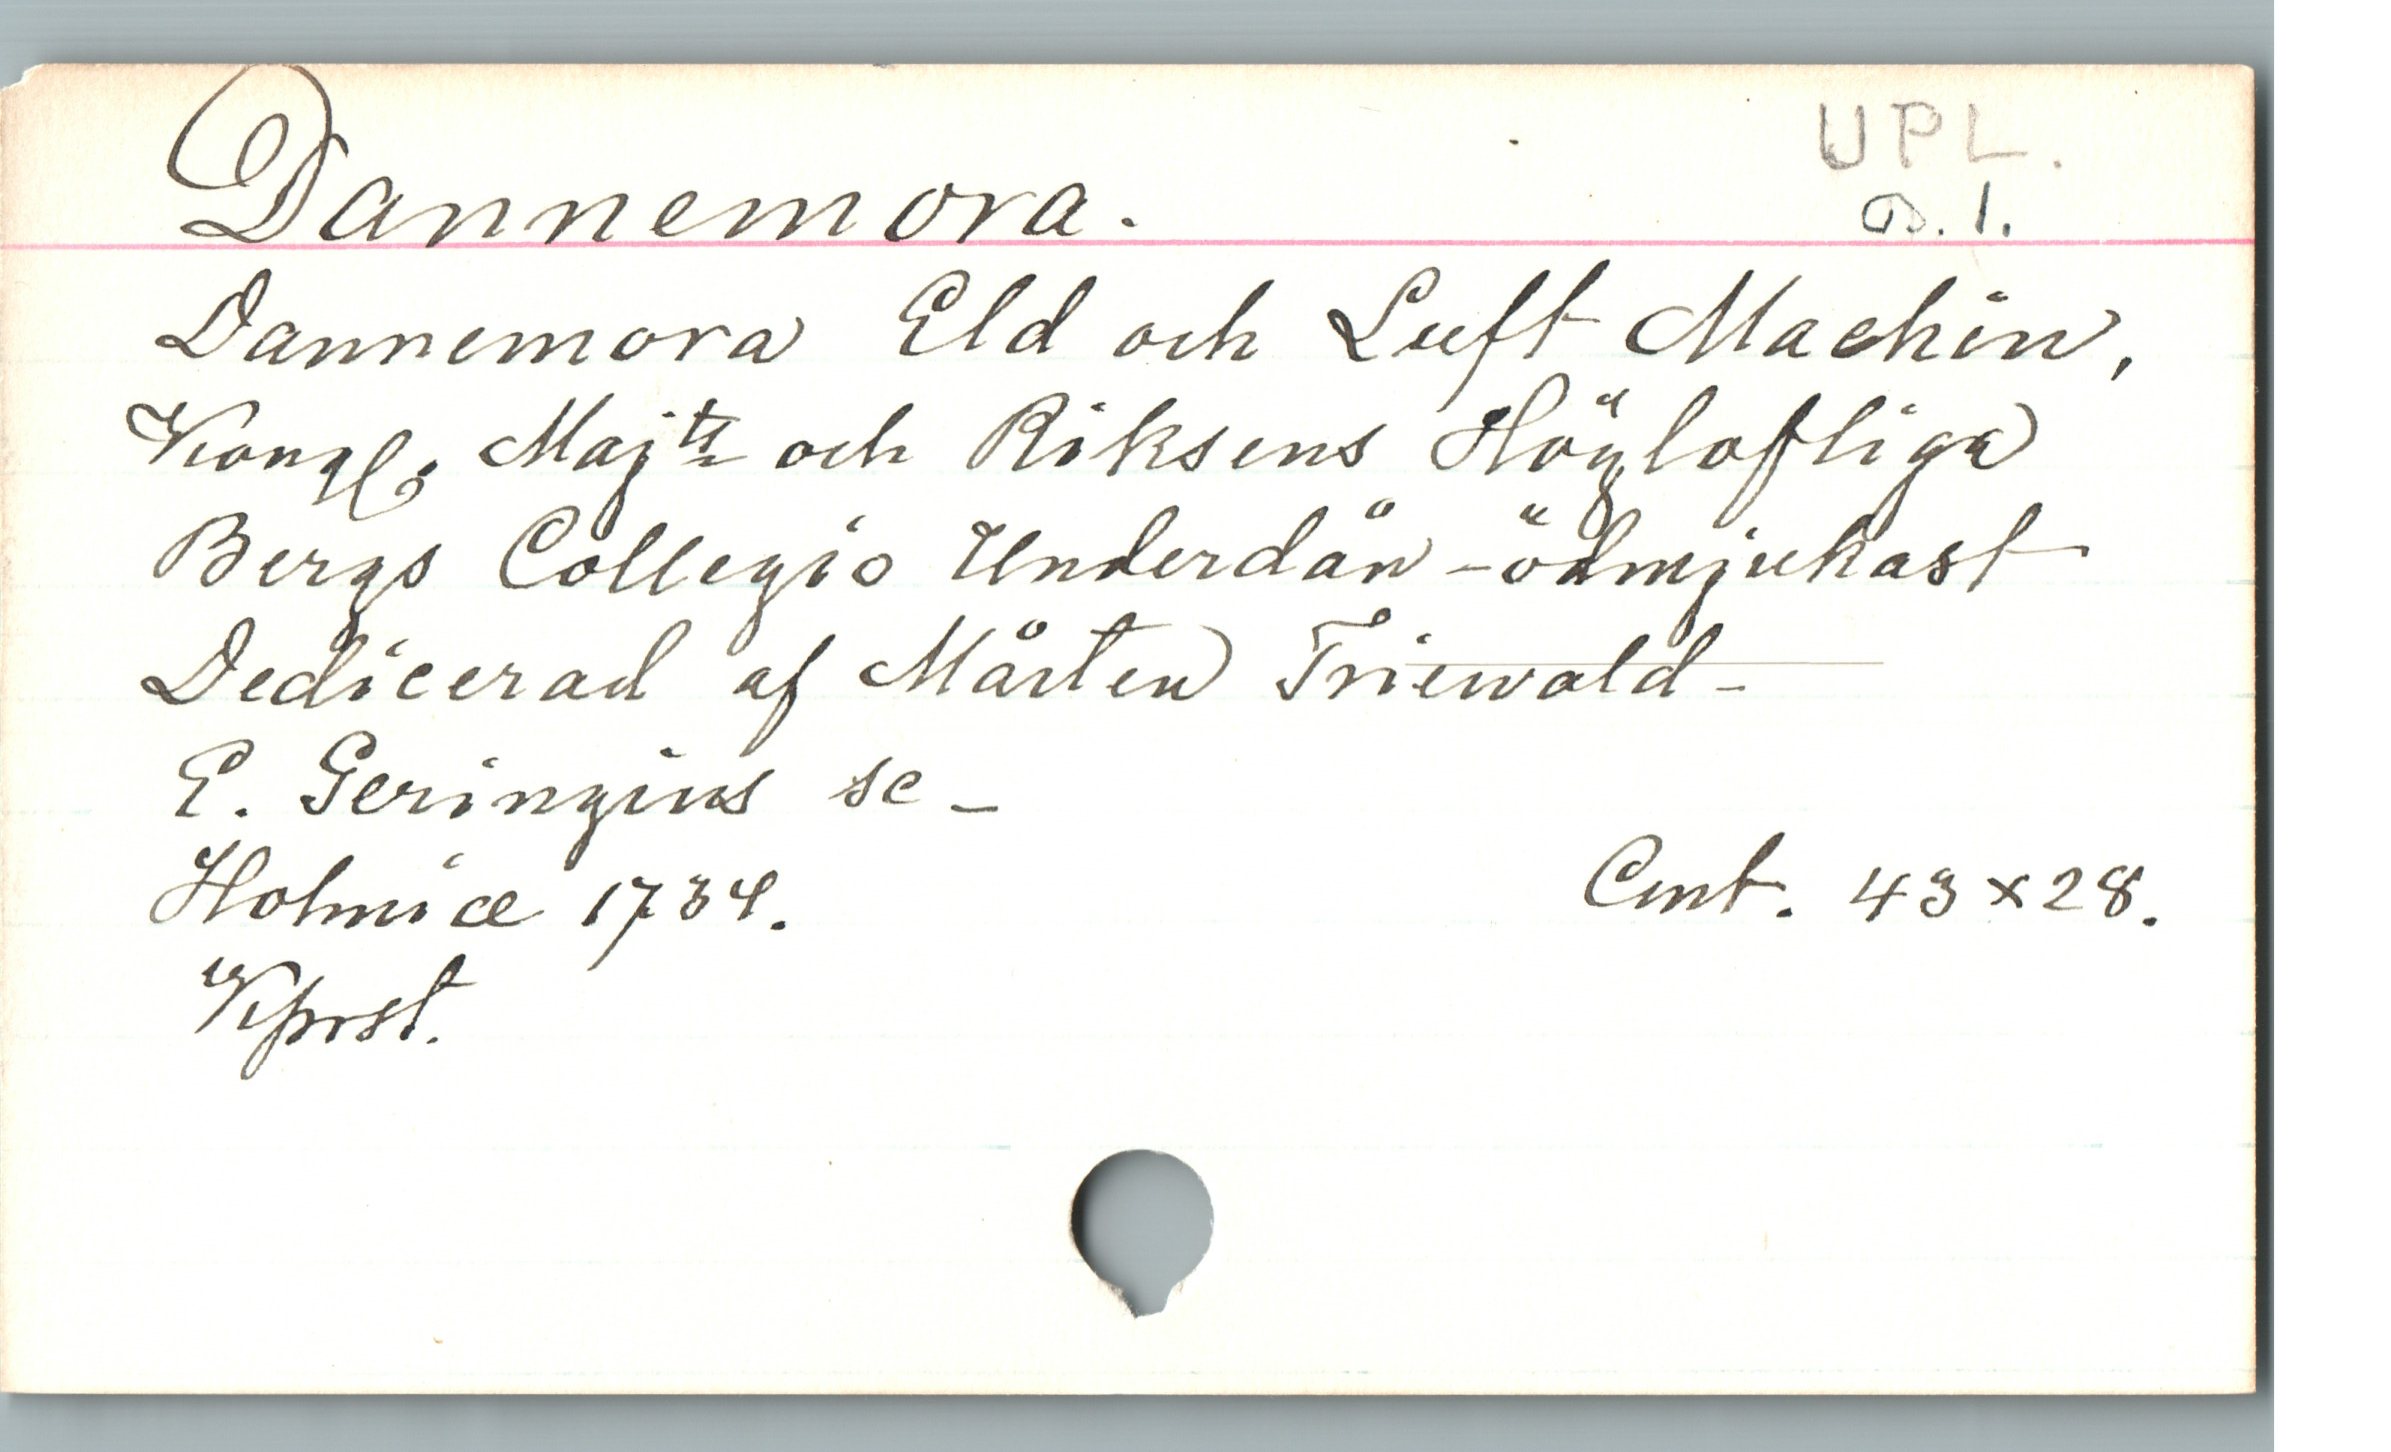 Dannemora.
UPL.
B. 1.
Dannemora Eld och Luft Machin,
Kongl. Maj:ts och Riksens Höglofliga
Bergs Collegio Underdån-ödmjukast
Dedicerad af Mårten Triewald-
E. Geringius sc-
Holmiæ 1734.
Cmt. 43 x 28.
Kprst.